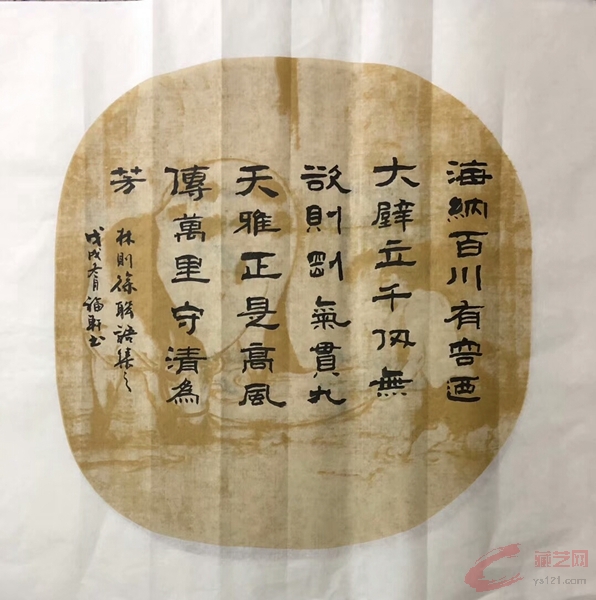 海納百川有容迺
大壁立千仞無
欲則剛氣貫九
天雅正是高風
傳萬里守清為
芳
林則徐聯語集之
戊戌冬月軒书
藏艺网
ys121.com